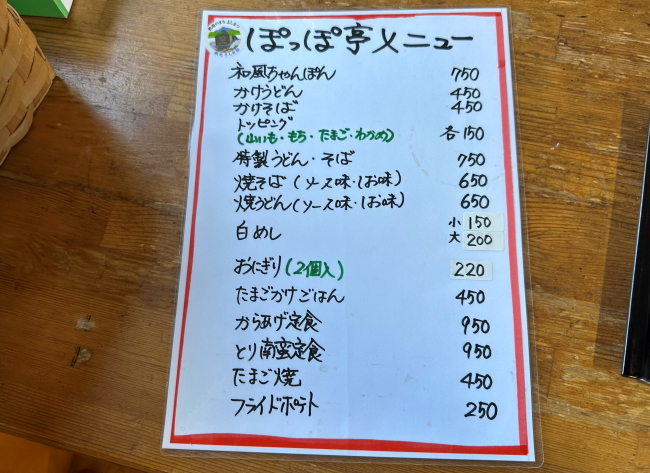 ぽっぽ亭メニュー
和風ちゃんぽん 750
かけうどん 450
かけそば 450
トッピング
(山いも・もち・たまご・わかめ) 各150
特製うどん・そば 750
焼そば(ソース味・しお味) 650
焼うどん(ソース味・しお味) 650
白めし 小 150
大 200
おにぎり(2個入) 220
たまごかけごはん 450
からあげ定食 950
とり南蛮定食 950
たまご焼 450
フライドポテト 250